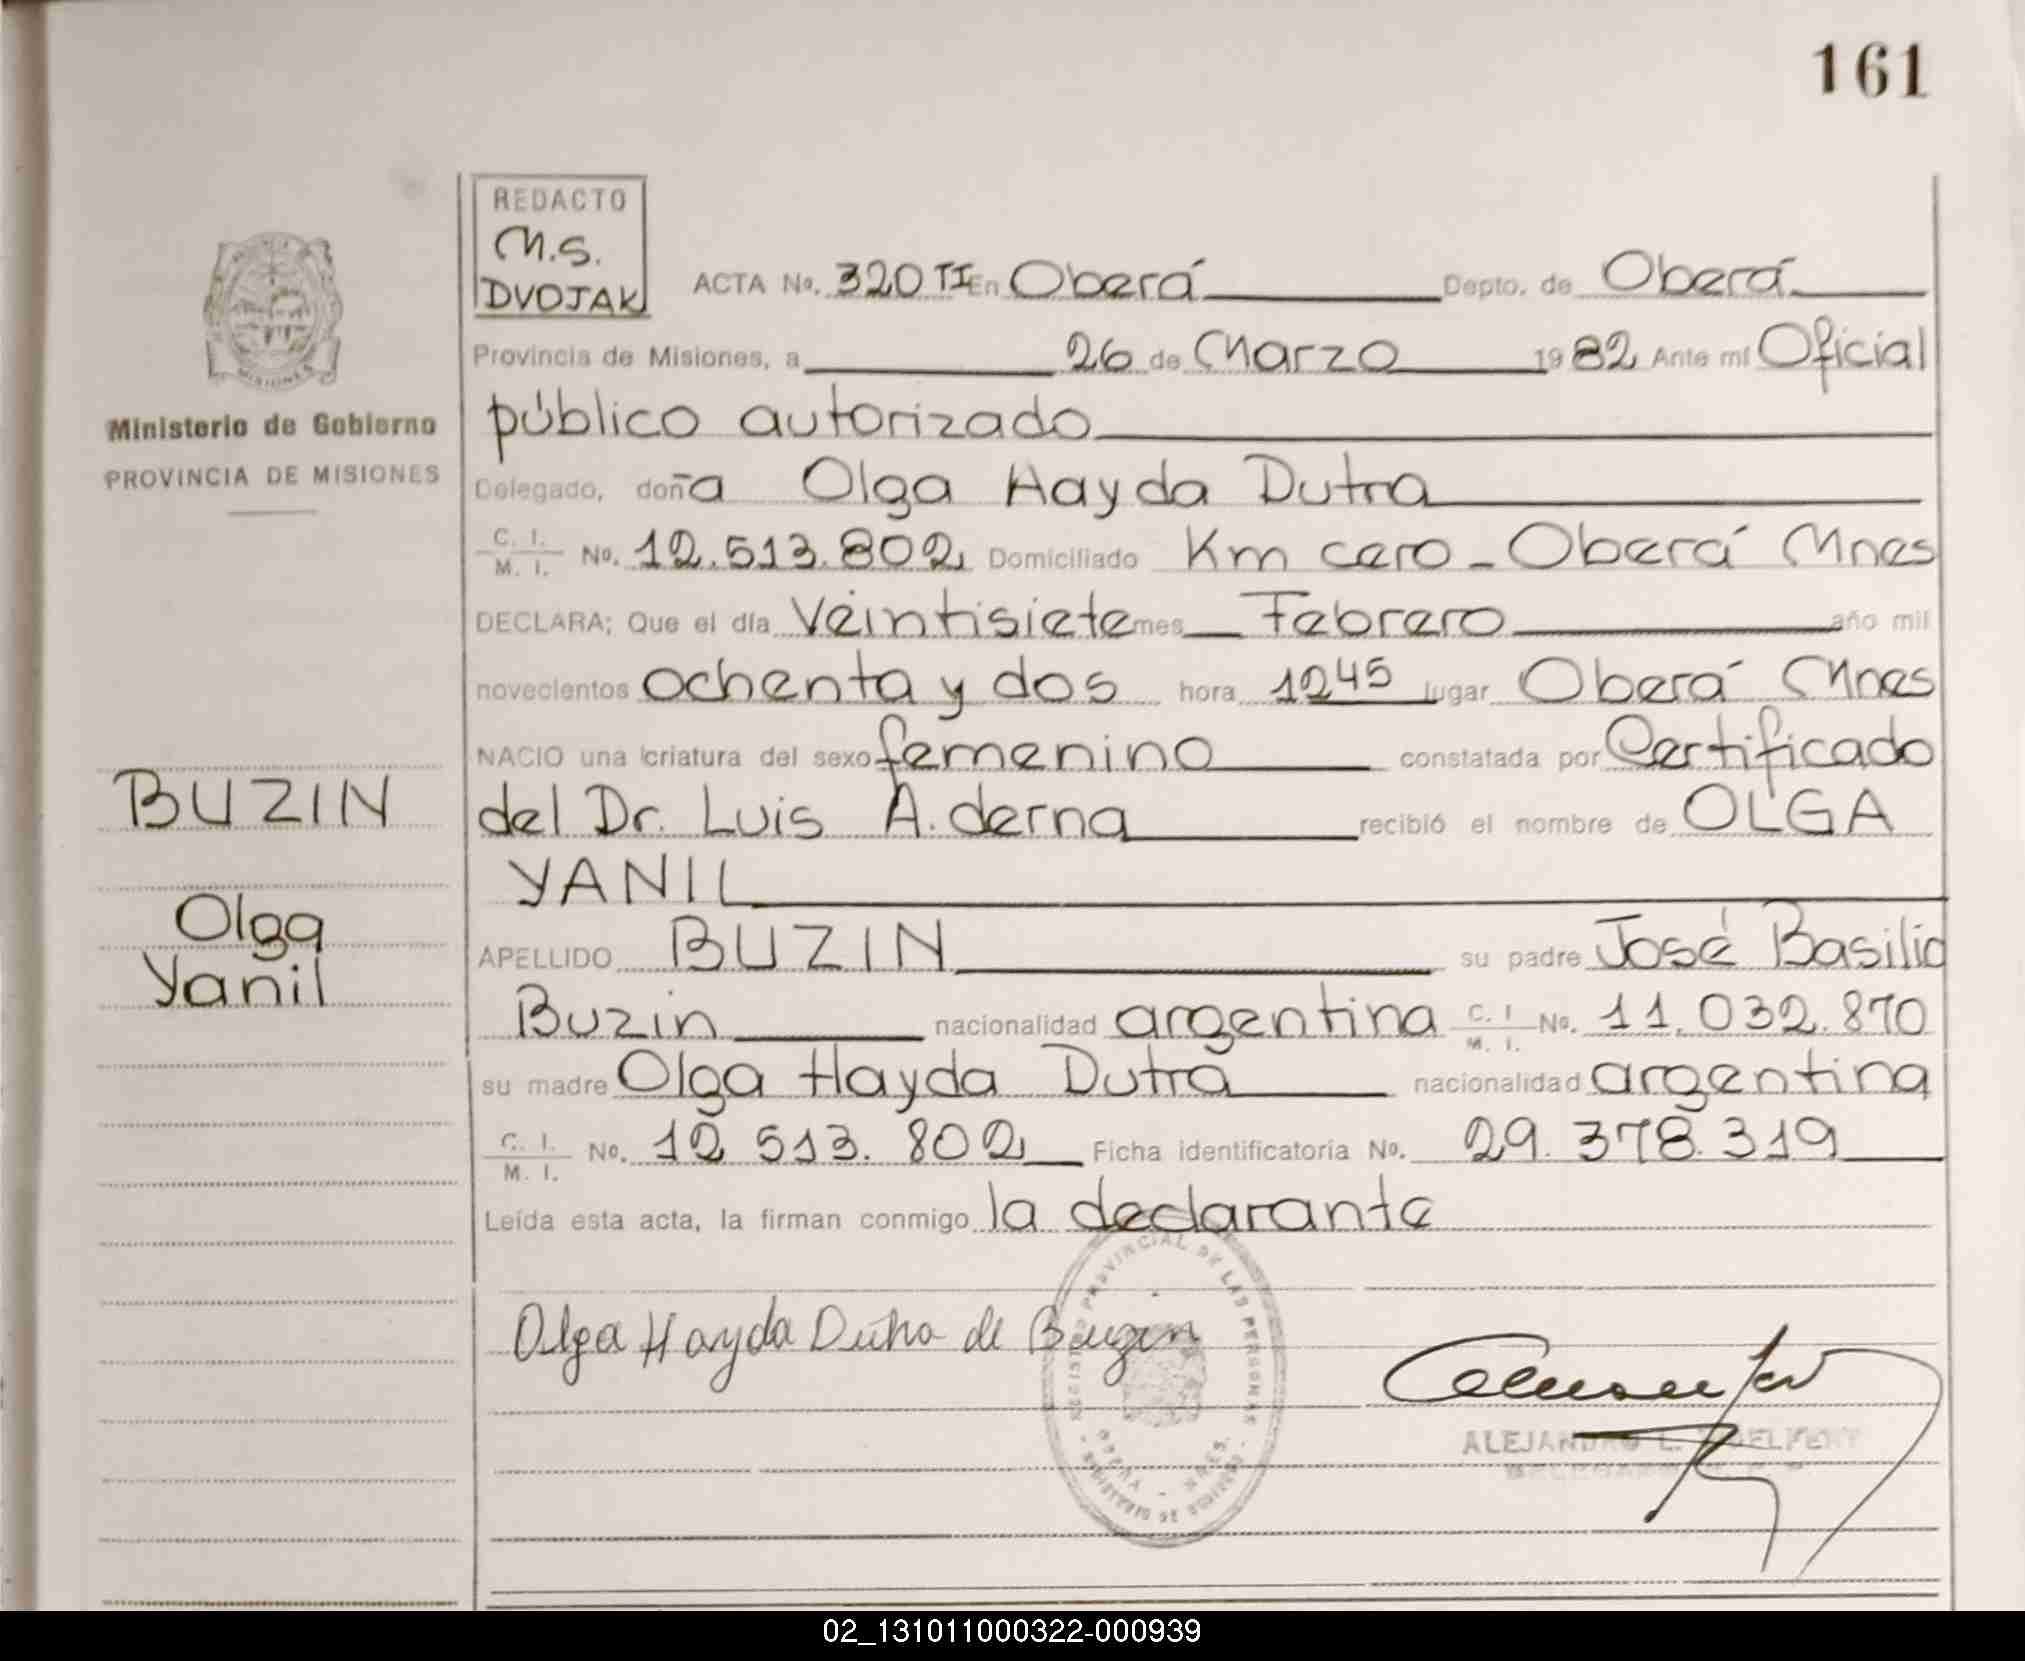 161
REDACTO
M.S.
DVOJAK
ACTA No. 320 TI En Oberá Depto. de Oberá
Provincia de Misiones, a 26 de Marzo 1982 Ante mí Oficial
público autorizado
Delegado, doña Olga Hayda Dutra
C. I. M. I. No. 12.513.802 Domiciliado Km cero - Oberá Mnes
DECLARA; Que el día Veintisiete mes Febrero año mil
novecientos ochenta y dos hora 1245 lugar Oberá Mnes
NACIO una criatura del sexo femenino constatada por Certificado
del Dr. Luis A. derna recibió el nombre de OLGA
YANIL
APELLIDO BUZIN su padre José Basilio
Buzin nacionalidad argentina C. I M. I. No. 11.032.870
su madre Olga Hayda Dutra nacionalidad argentina
C. I. M. I. No. 12 513. 802 Ficha identificatoria No. 29.378.319
Leída esta acta, la firman conmigo la declarante
Olga Hayda Dutra de Buzin
ALEJANDRO L.
PROVINCIAL DE LAS PERSONAS
MISIONES
Ministerio de Gobierno
PROVINCIA DE MISIONES
BUZIN
Olga
Yanil
02_131011000322-000939